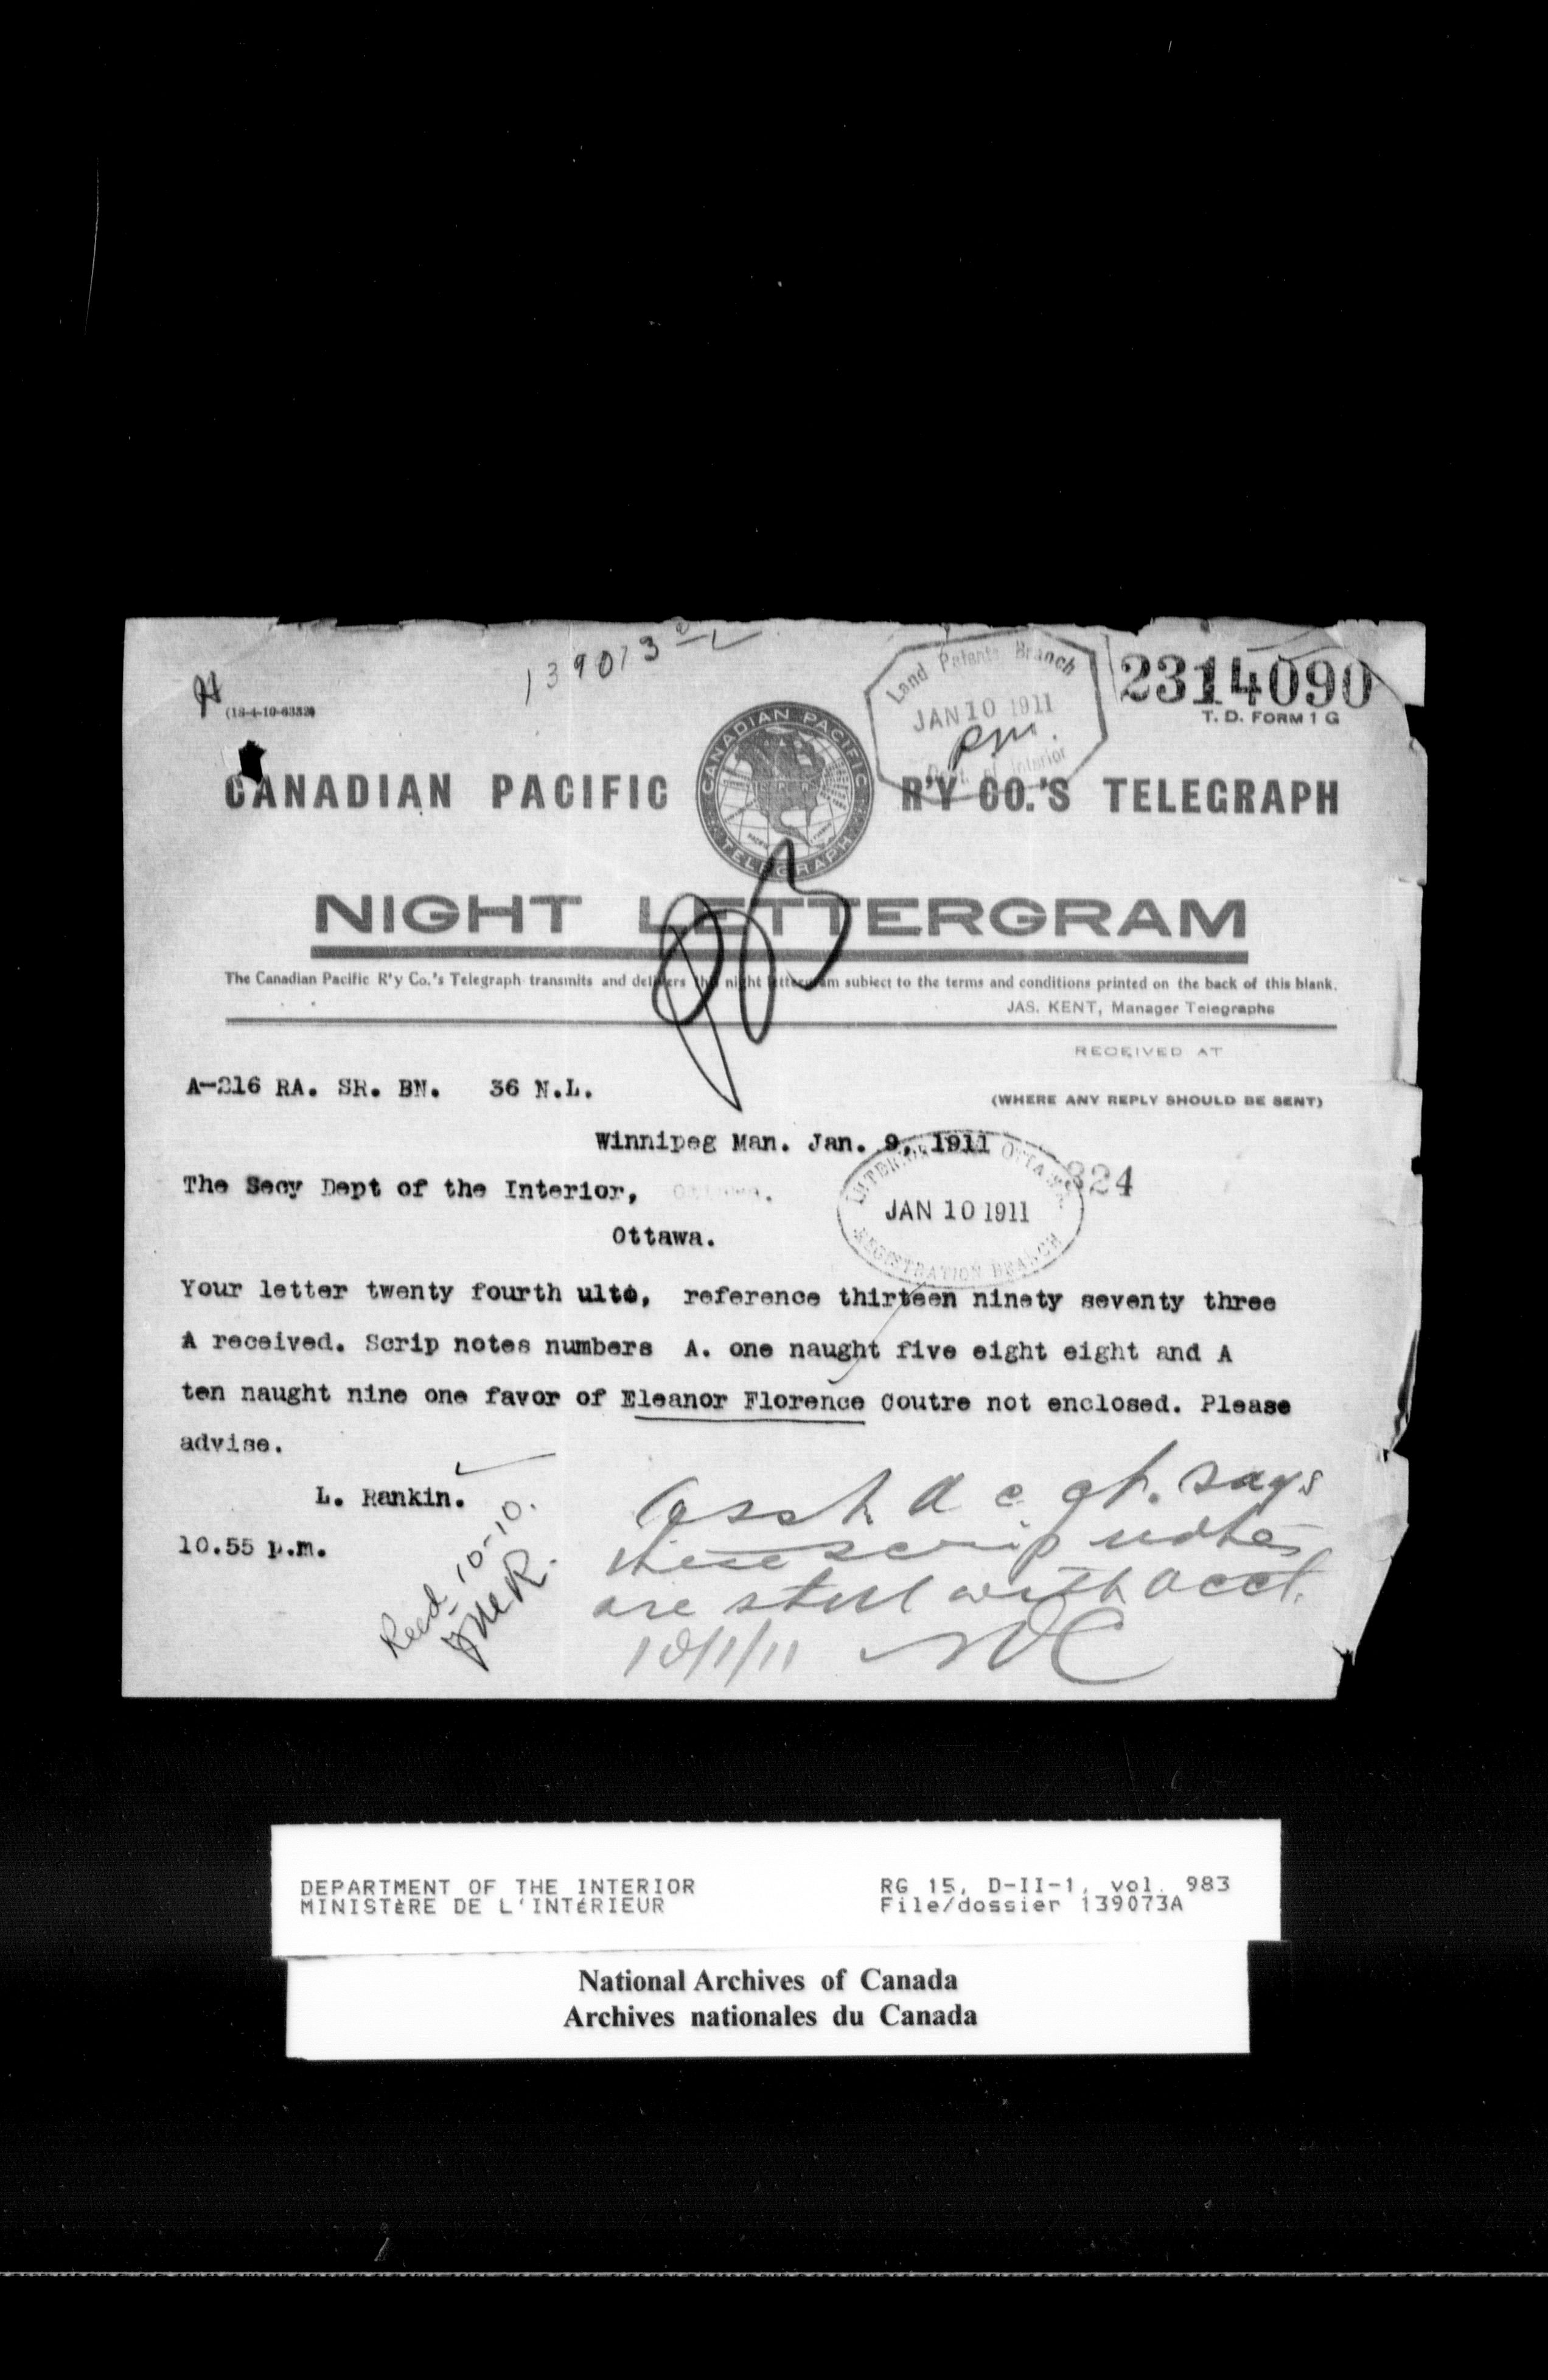 139073
Land Patents Branch
JAN 10 1911
pm.
Dept. of Interior
2314090
T. D. FORM 1 G
CANADIAN PACIFIC R'Y CO.'S TELEGRAPH
CANADIAN PACIFIC
TELEGRAPH
NIGHT LETTERGRAM
The Canadian Pacific R'y Co.'s Telegraph transmits and delivers this night lettergram subject to the terms and conditions printed on the back of this blank.
JAS. KENT, Manager Telegraphs
RECEIVED AT
A-216 RA. SR. BN. 36 N.L.
(WHERE ANY REPLY SHOULD BE SENT)
Winnipeg Man. Jan. 9, 1911
The Secy Dept of the Interior, Ottawa.
324
INTERIOR OTTAWA
JAN 10 1911
REGISTRATION BRANCH
Ottawa.
Your letter twenty fourth ulto, reference thirteen ninety seventy three
A received. Scrip notes numbers A. one naught five eight eight and A
ten naught nine one favor of Eleanor Florence Coutre not enclosed. Please
advise.
L. Rankin.
10.55 p.m.
Recd 10-10.
Asst. Acct. says
these scrip notes
are still with Acct.
10/1/11
DEPARTMENT OF THE INTERIOR
MINISTÈRE DE L'INTÉRIEUR
RG 15, D-II-1, vol. 983
File/dossier 139073A
National Archives of Canada
Archives nationales du Canada